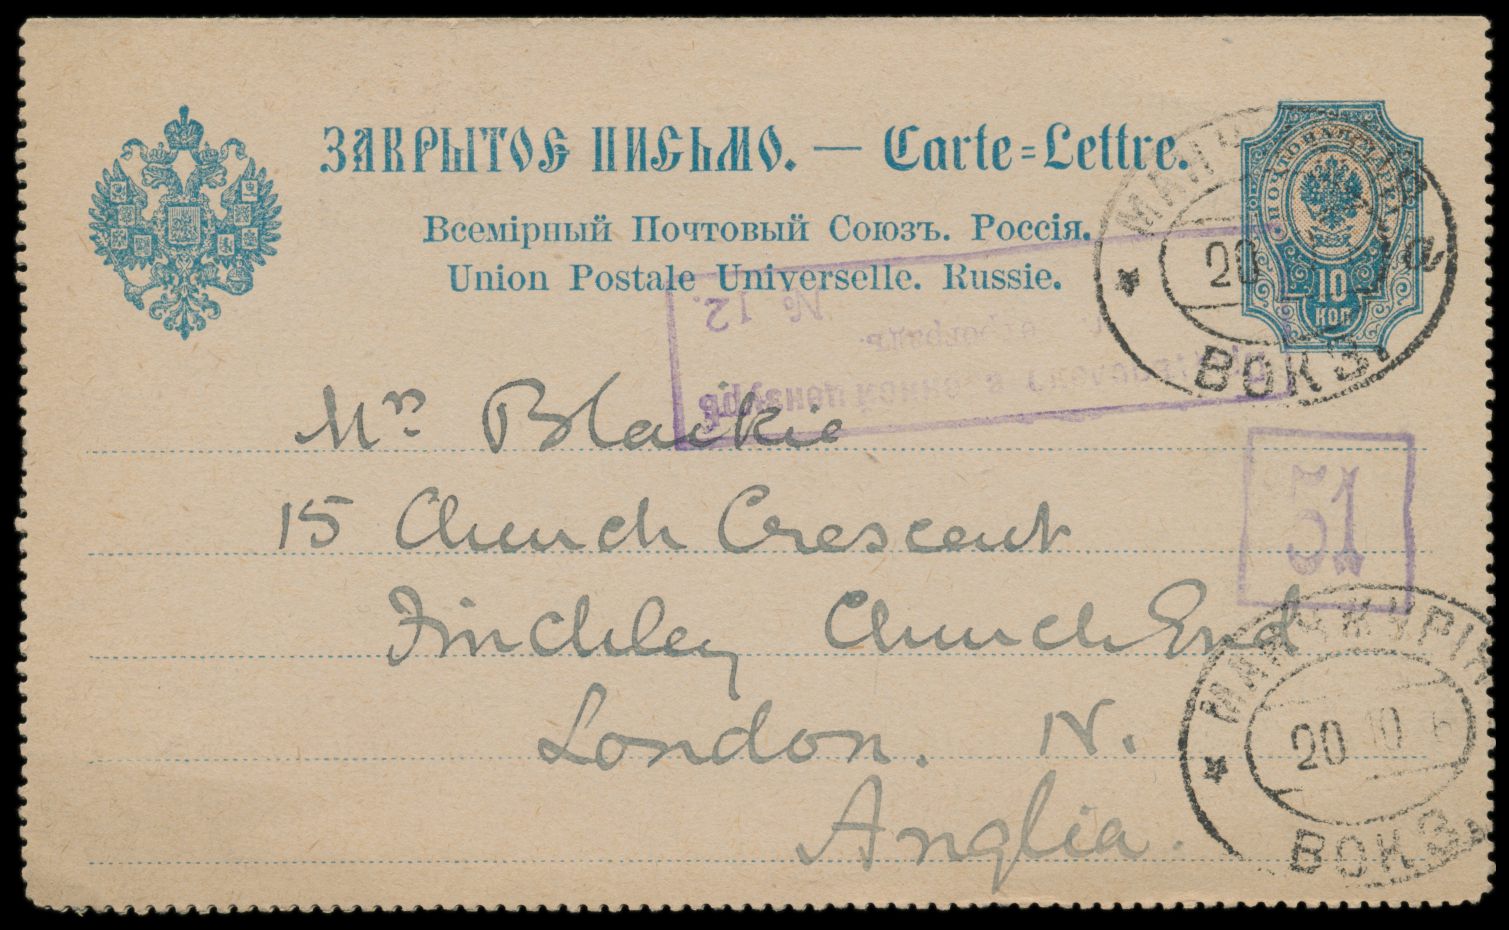 ЗАКРЫТОЕ ПИСЬМО. — Carte=Lettre.
Всемірный Почтовый Союзъ. Россія.
Union Postale Universelle. Russie.
ПОЧТОВАЯ МАРКА
10
КОП
20
а
ВОКЗ.
№ 12.
военной цензурѣ
Mrs Blackie
15 Church Crescent
Finchley Church End
London. N.
Anglia.
51
МАНЧЖУРІЯ
20 10 6
ВОКЗ.